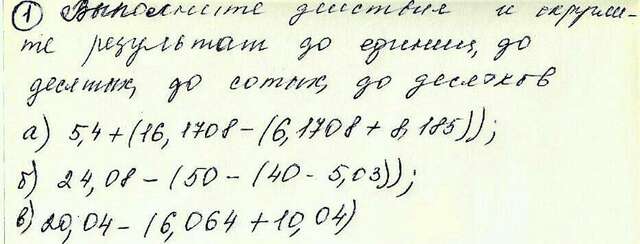 ① Выполните действия и округли-
те результат до единиц, до
десятых, до сотых, до десятков
а) 5,4+(16,1708-(6,1708+8,185));
б) 24,08-(50-(40-5,03));
в) 20,04-(6,064+10,04)